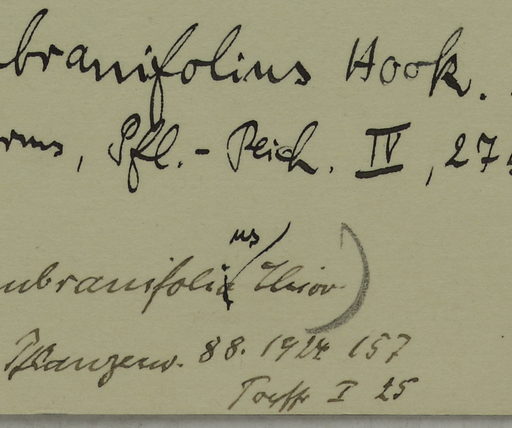 branifolius Hook.
rms, Pfl.-Reich. IV, 27
us
mbranifolia
Pflanzenw. 88. 1924 157
I 25